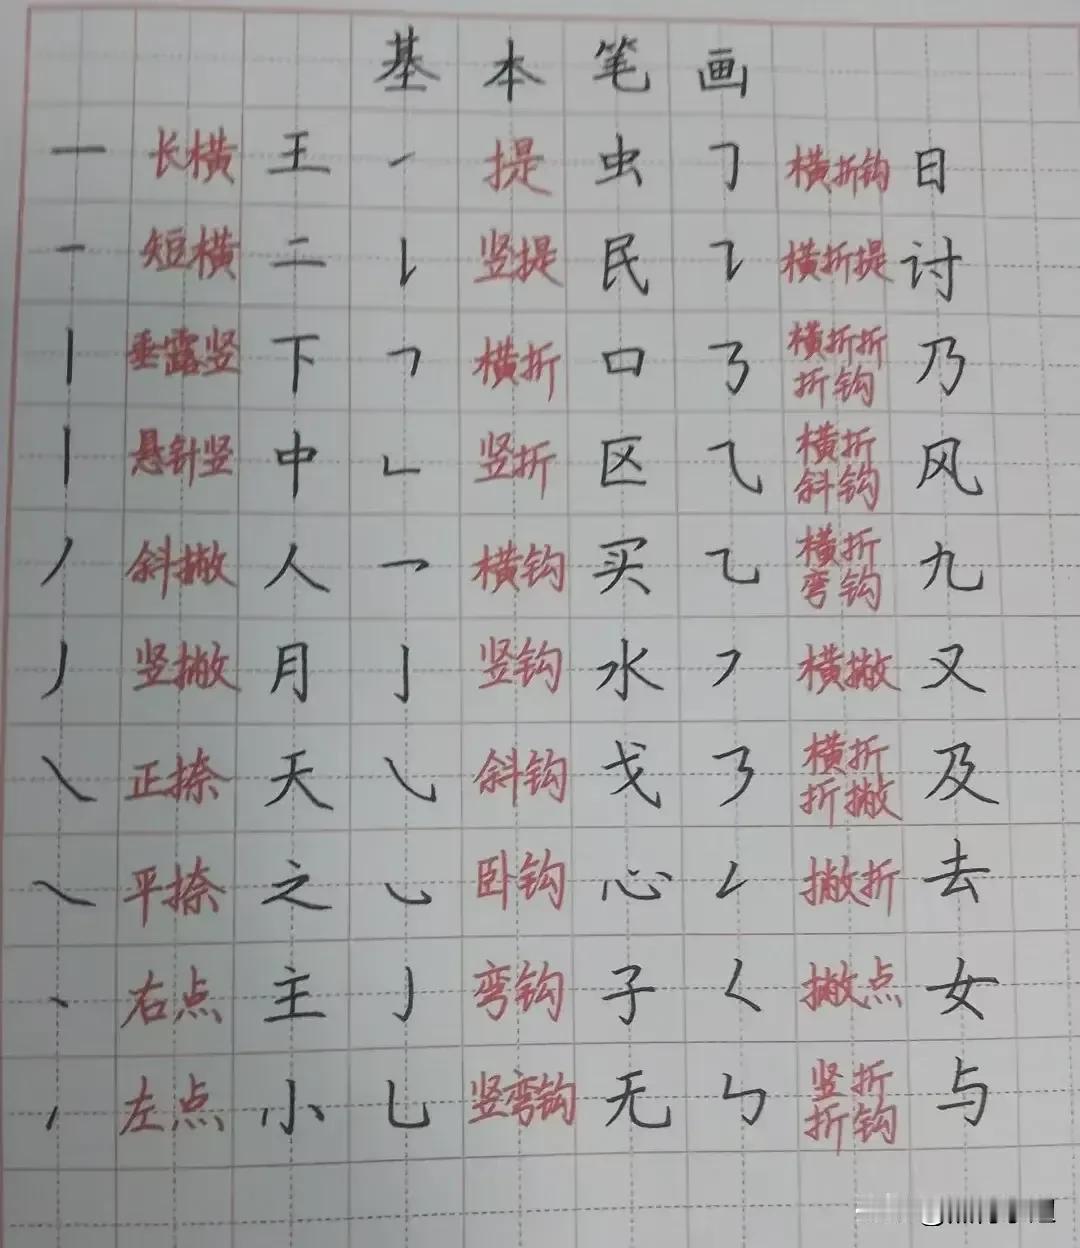 基本笔画
一 长横 王 ㇀ 提 虫 ㇆ 横折钩 日
一 短横 二 𠄌 竖提 民 ㇊ 横折提 讨
丨 垂露竖 下 ㇕ 横折 口 ㇡ 横折折折钩 乃
丨 悬针竖 中 ㇗ 竖折 区 ⺄ 横折斜钩 风
丿 斜撇 人 ㇖ 横钩 买 ㇈ 横折弯钩 九
丿 竖撇 月 亅 竖钩 水 ㇇ 横撇 又
㇏ 正捺 天 ㇂ 斜钩 戈 ㇋ 横折折撇 及
㇏ 平捺 之 ㇃ 卧钩 心 ㇜ 撇折 去
丶 右点 主 ㇁ 弯钩 子 ㇛ 撇点 女
㇒ 左点 小 乚 竖弯钩 无 ㇉ 竖折折钩 与